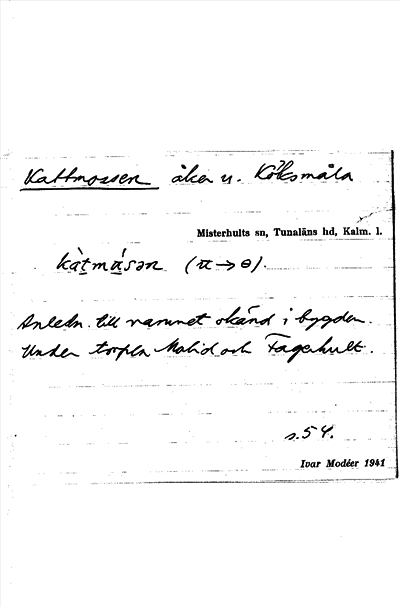 Kattmossen åker u. Köksmåla
Misterhults sn, Tunaläns hd, Kalm. l.
kàtmɷ́sən (ɷ→ɵ).
Anledn. till namnet okänd i bygden.
Under torpen Malid och Fagerhult.
s. 54.
Ivar Modéer 1941